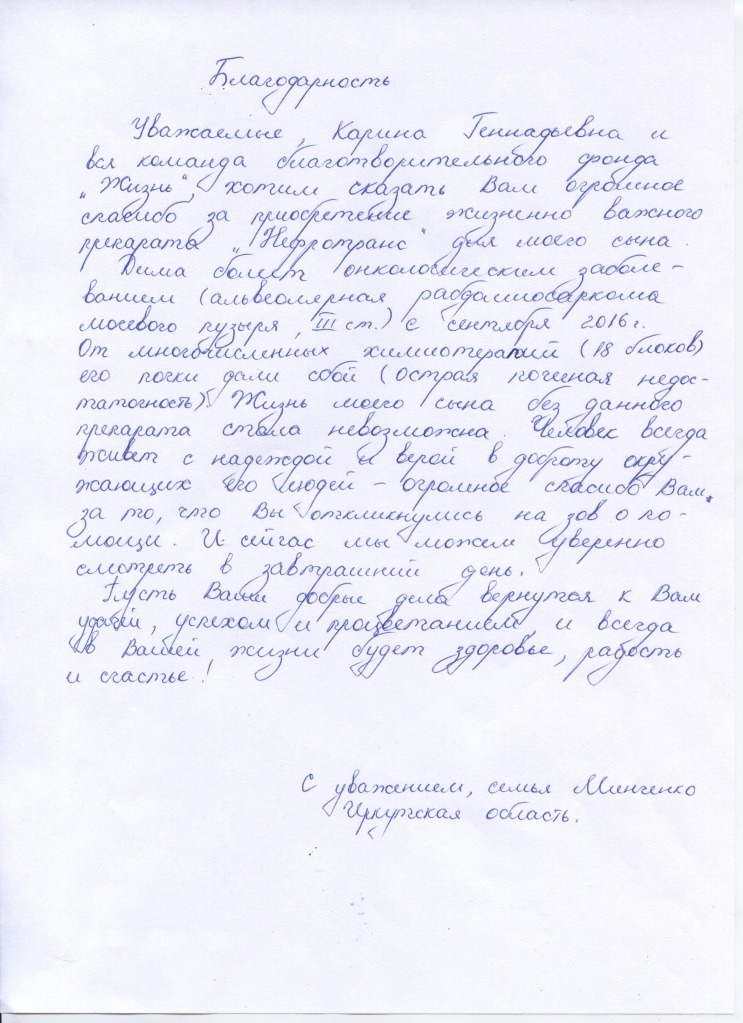 Благодарность
Уважаемые, Карина Геннадьевна и
вся команда благотворительного фонда
„Жизнь", хотим сказать Вам огромное
спасибо за приобретение жизненно важного
препарата „Нефротранс" для моего сына.
Дима болеет онкологическим заболе-
ванием (альвеолярная рабдомиосаркома
мочевого пузыря, III ст.) с сентября 2016г.
От многочисленных химиотерапий (18 блоков)
его почки дали сбой (острая почечная недос-
таточность). Жизнь моего сына без данного
препарата стала невозможна. Человек всегда
живет с надеждой и верой в доброту окру-
жающих его людей – огромное спасибо Вам,
за то, что Вы откликнулись на зов о по-
мощи. И сейчас мы можем уверенно
смотреть в завтрашний день.
Пусть Ваши добрые дела вернутся к Вам
удачей, успехом и процветанием, и всегда
в Вашей жизни будет здоровье, радость
и счастье!
С уважением, семья Минченко
Иркутская область.